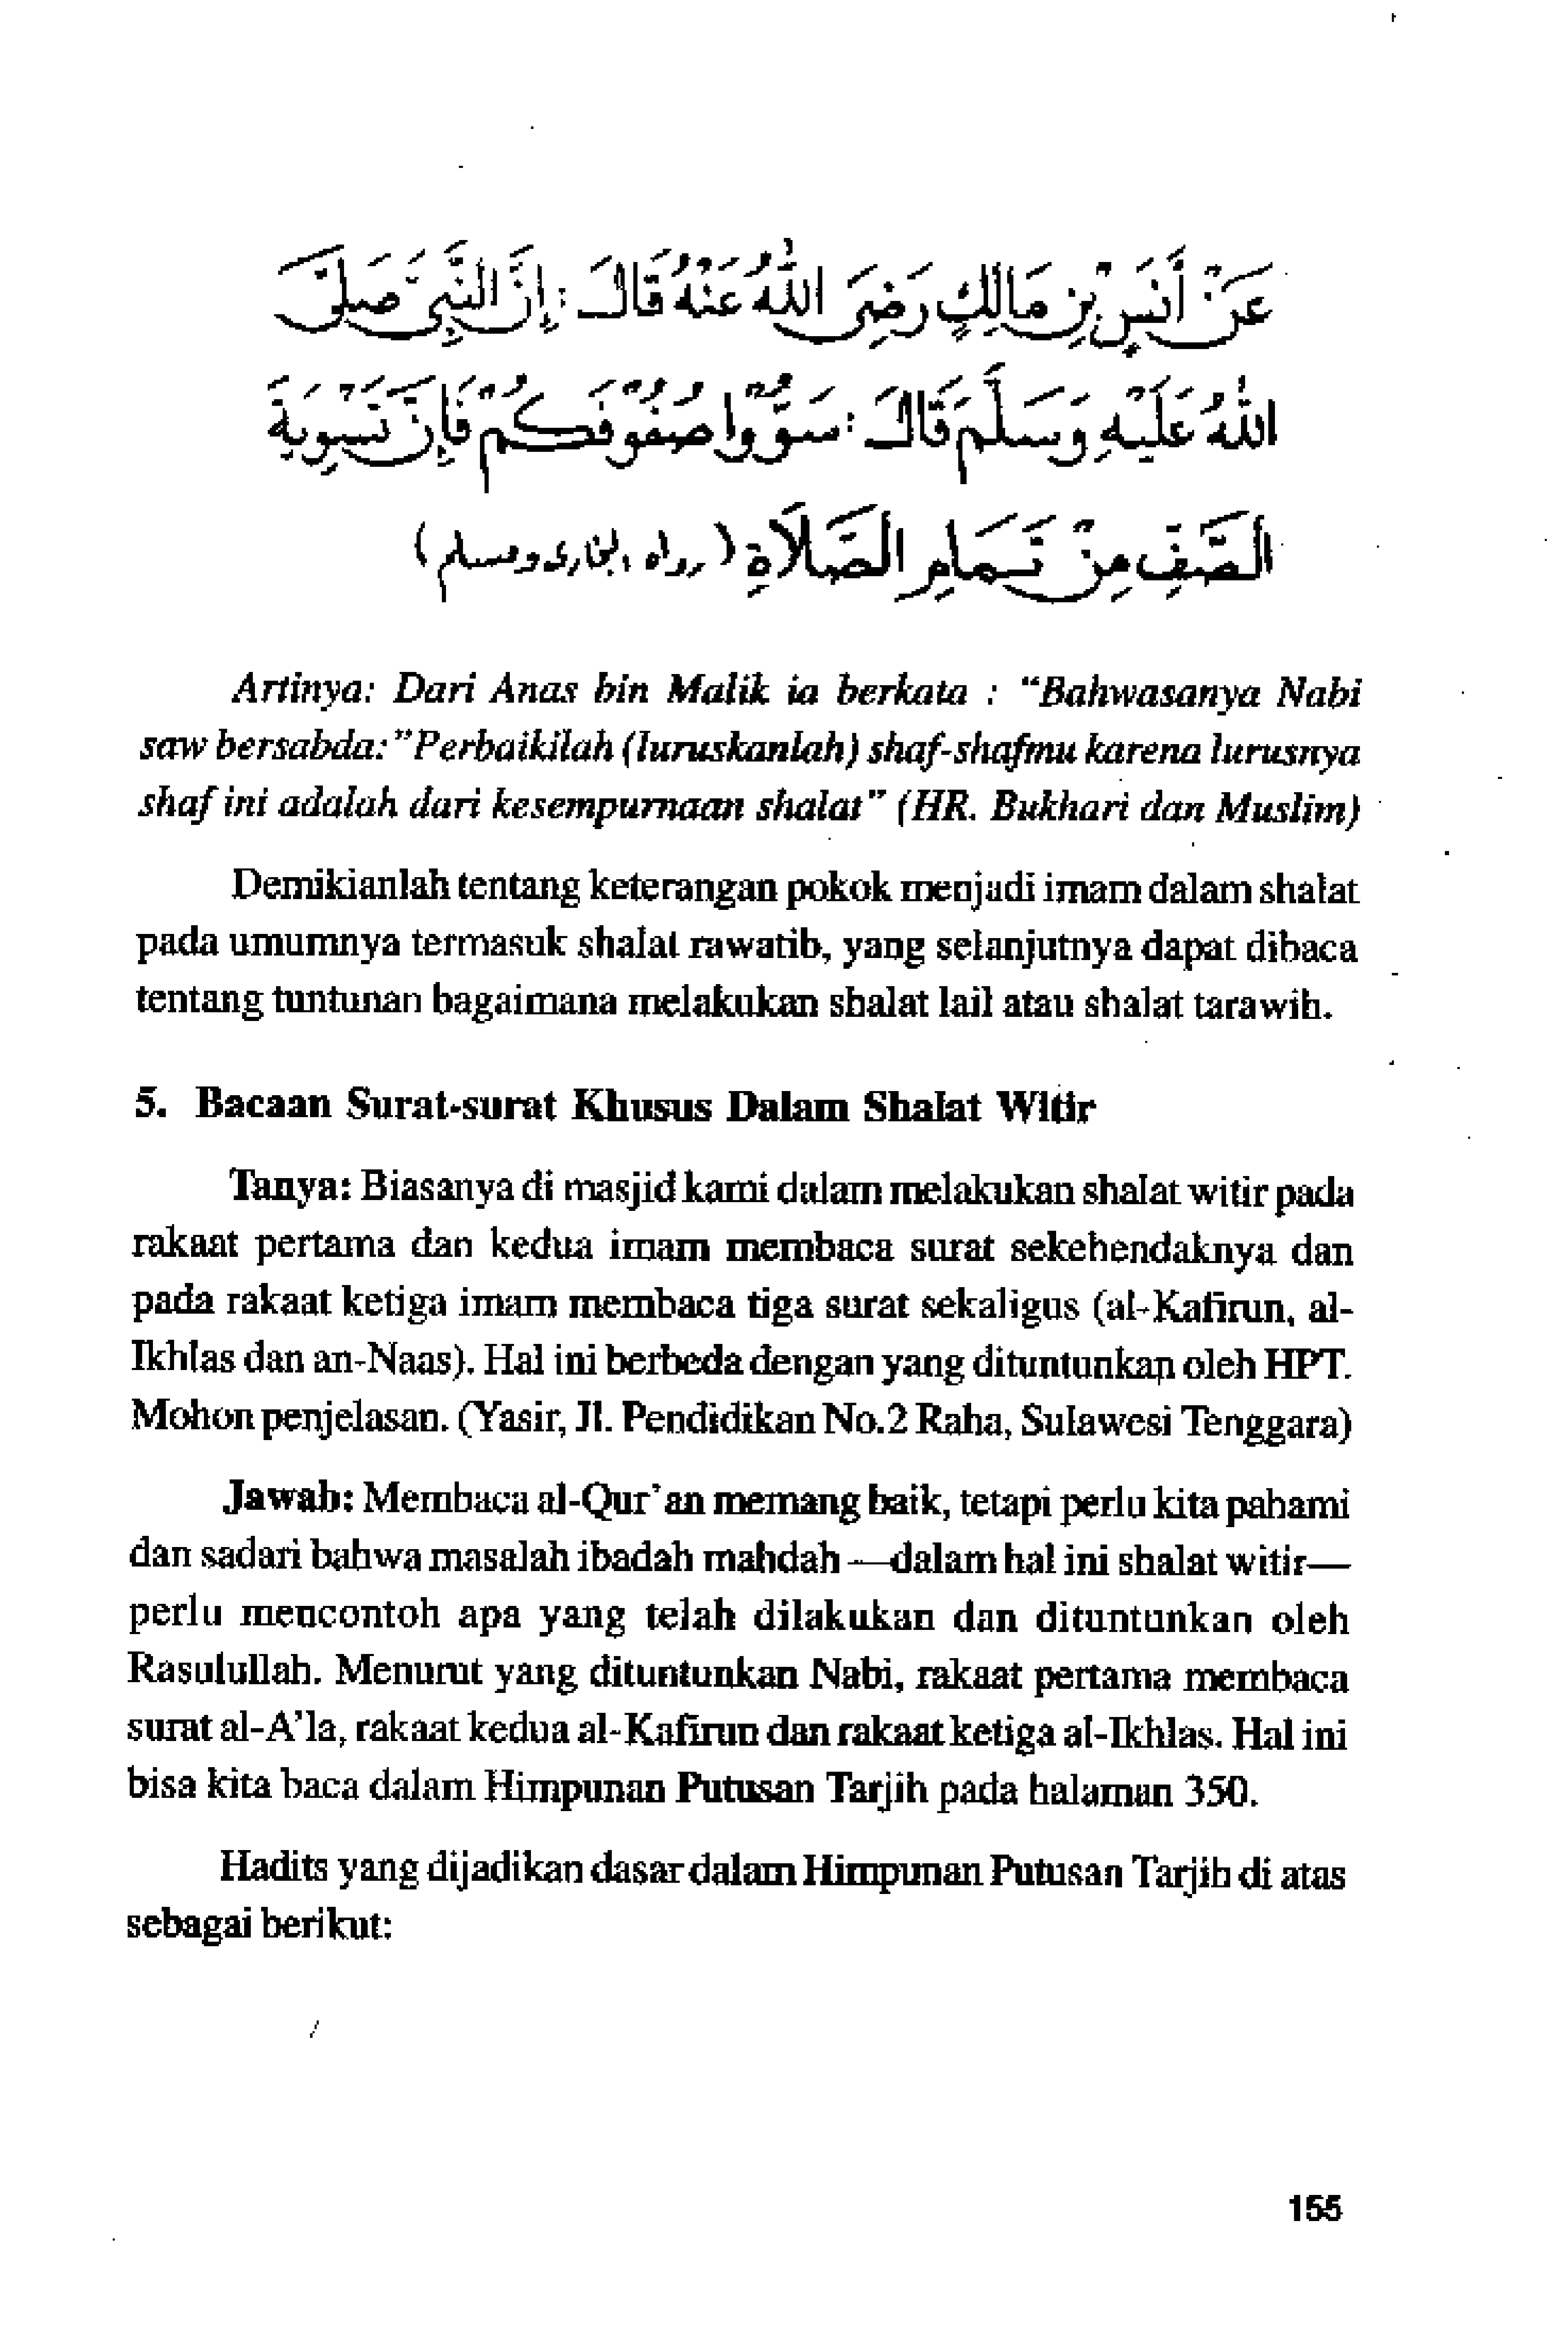 عَنْ أَنَسٍ بْنِ مَالِكٍ رَضِيَ اللهُ عَنْهُ قَالَ : إِنَّ النَّبِيَّ صَلَّى
اللهُ عَلَيْهِ وَسَلَّمَ قَالَ : سَوُّوْا صُفُوْفَكُمْ فَإِنَّ تَسْوِيَةَ
الصَّفِّ مِنْ تَمَامِ الصَّلَاةِ ( رواه البخارى ومسلم )
Artinya: Dari Anas bin Malik ia berkata : "Bahwasanya Nabi
saw bersabda:"Perbaikilah (luruskanlah) shaf-shafmu karena lurusnya
shaf ini adalah dari kesempurnaan shalat" (HR. Bukhari dan Muslim)
Demikianlah tentang keterangan pokok menjadi imam dalam shalat
pada umumnya termasuk shalat rawatib, yang selanjutnya dapat dibaca
tentang tuntunan bagaimana melakukan shalat lail atau shalat tarawih.
5. Bacaan Surat-surat Khusus Dalam Shalat Witir
Tanya: Biasanya di masjid kami dalam melakukan shalat witir pada
rakaat pertama dan kedua imam membaca surat sekehendaknya dan
pada rakaat ketiga imam membaca tiga surat sekaligus (al-Kafirun, al-
Ikhlas dan an-Naas). Hal ini berbeda dengan yang dituntunkan oleh HPT.
Mohon penjelasan. (Yasir, Jl. Pendidikan No.2 Raha, Sulawesi Tenggara)
Jawab: Membaca al-Qur'an memang baik, tetapi perlu kita pahami
dan sadari bahwa masalah ibadah mahdah —dalam hal ini shalat witir—
perlu mencontoh apa yang telah dilakukan dan dituntunkan oleh
Rasulullah. Menurut yang dituntunkan Nabi, rakaat pertama membaca
surat al-A'la, rakaat kedua al-Kafirun dan rakaat ketiga al-Ikhlas. Hal ini
bisa kita baca dalam Himpunan Putusan Tarjih pada halaman 350.
Hadits yang dijadikan dasar dalam Himpunan Putusan Tarjih di atas
sebagai berikut:
155